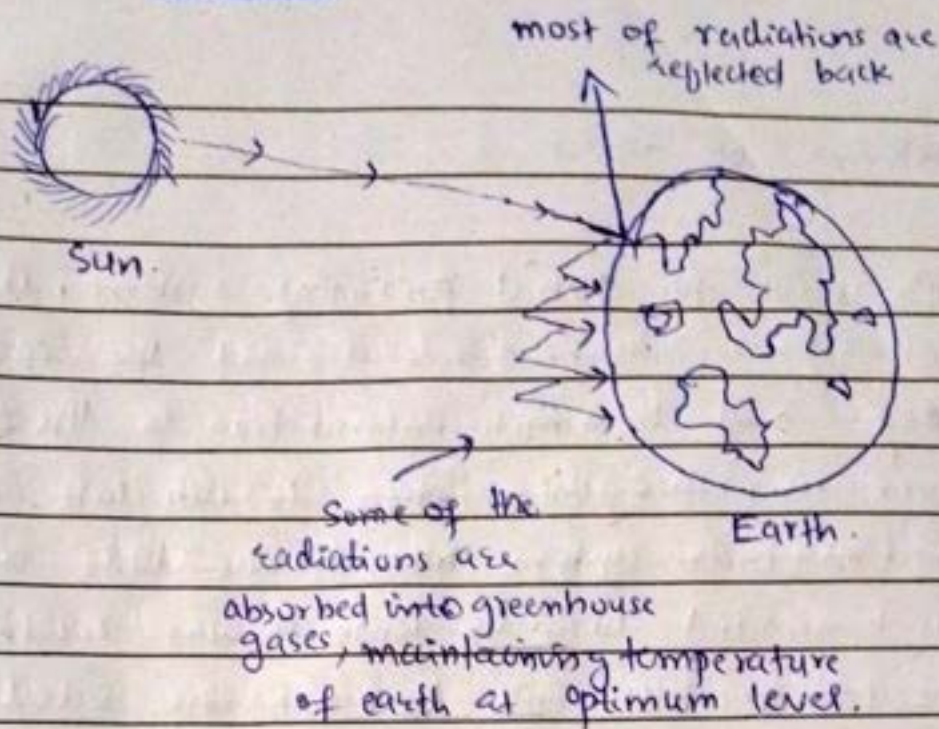 most of radiations are
reflected back
Sun.
Earth.
Some of the
radiations are
absorbed into greenhouse
gases, maintaining temperature
of earth at optimum level.